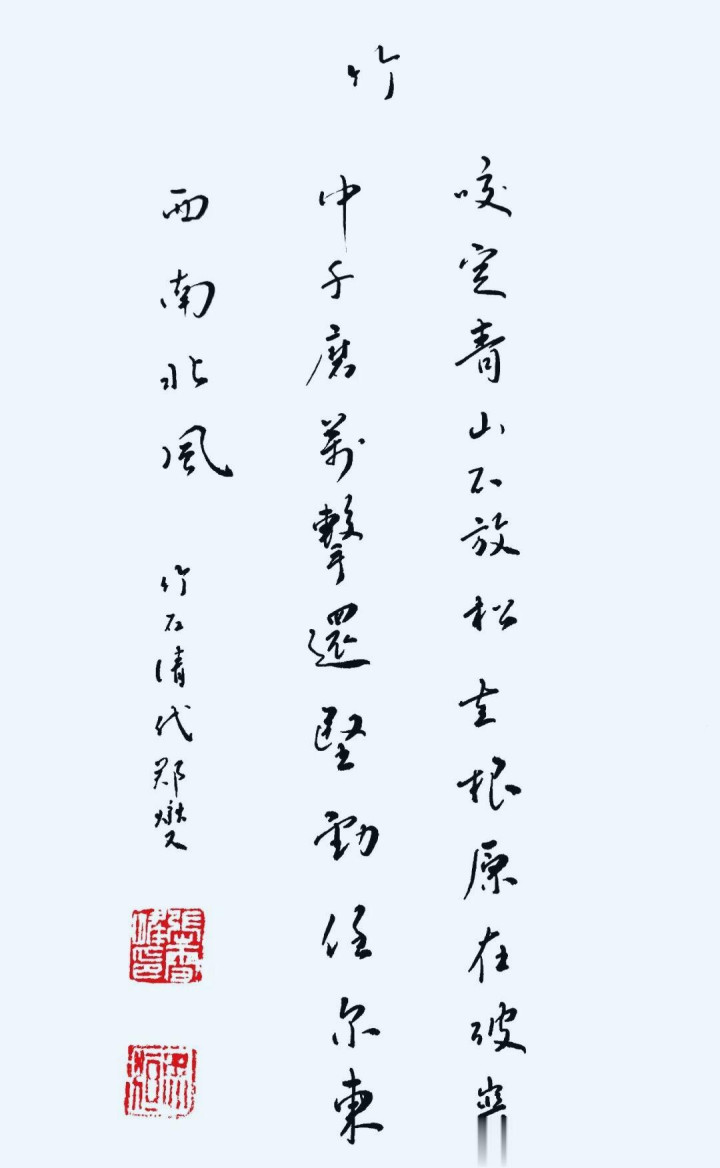 竹
咬定青山不放松立根原在破
中千磨萬擊還堅勁任尔東
西南北風 竹石清代郑燮